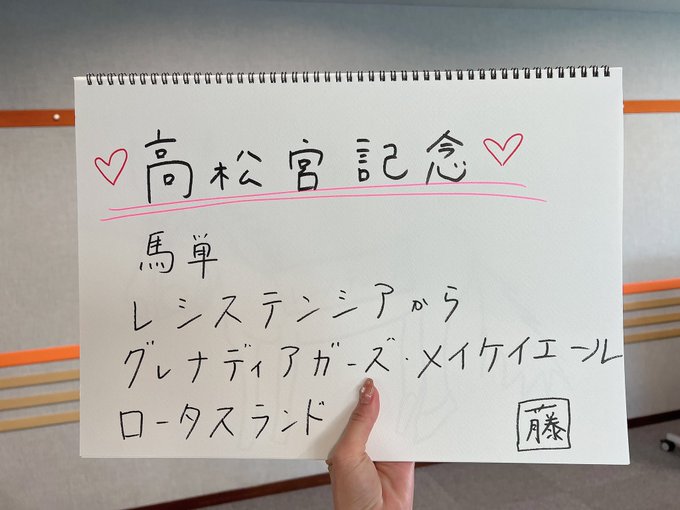 高松宮記念
馬単
レシステンシアから
グレナディアガーズ・メイケイエール
ロータスランド
藤